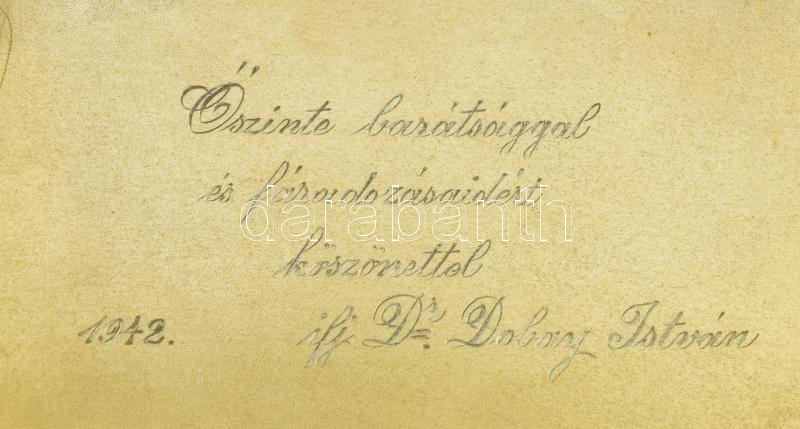 Őszinte barátsággal
és fáradozásaidért
darabanth
köszönettel
1942. ifj. Dr. Dobay István